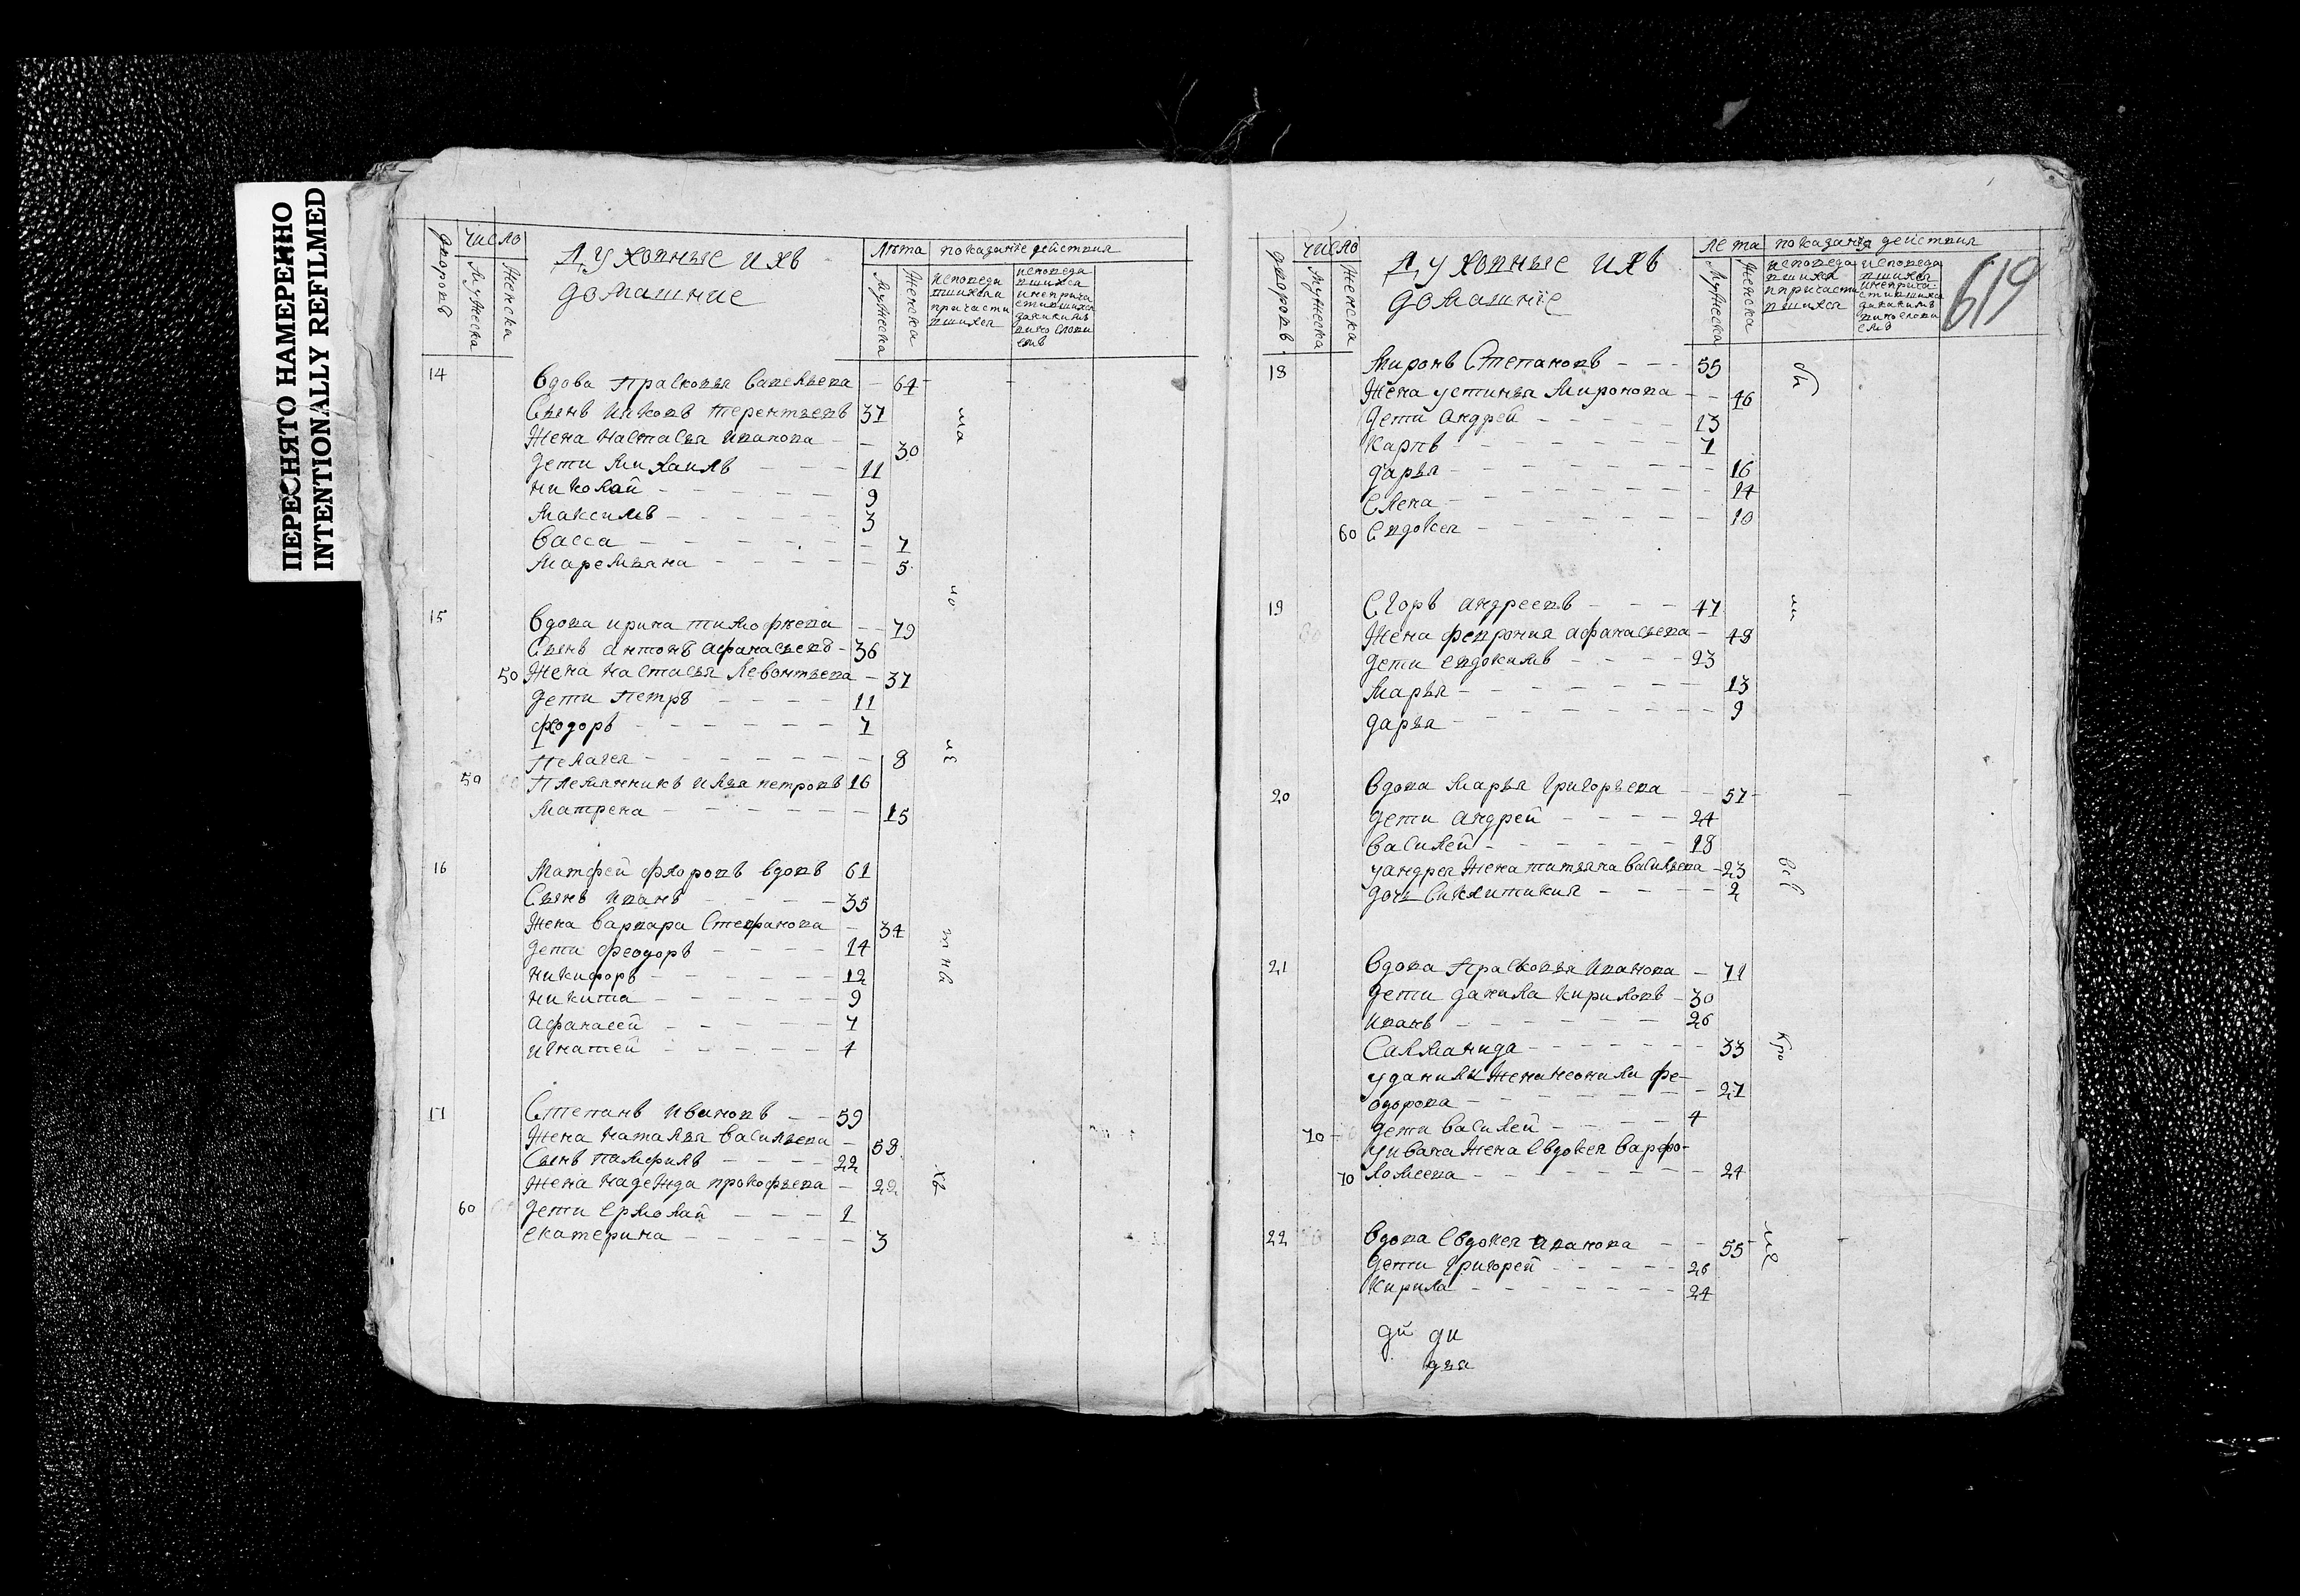 ПЕРЕСНЯТО НАМЕРЕННО
INTENTIONALLY REFILMED
дворовъ
число
Мужеска
Женска
Духовные ихъ
домашние
лѣта
показание действия
Мужеска
Женска
исповеда
вшихся
причасти
вшихся
исповеда
вшихся
инеприча
стившихся
14 Вдова Прасковья Савельева – 64
Сынъ Иаковъ Терентьевъ 37
Жена Настасья Иванова – – 30
Дети Михаилъ – – – 11
Николай – – – 9
Максимъ – – – 3
Васса – – – 7
Маремьяна – – – 5
15 Вдова Ирина Тимофеева – – 79
Сынъ Антонъ Афанасьевъ – 36
50 Жена Настасья Левонтьева – 37
Дети Петръ – – – 11
Феодоръ – – – 7
Пелагея – – – 8
50 Племянникъ Илья Петровъ 16
Матрена – – – 15
16 Матфей Флоровъ вдовъ 61
Сынъ Иванъ – – – 35
Жена Варвара Стефанова – 34
Дети Феодоръ – – – 14
Никифоръ – – – 12
Никита – – – 9
Афанасей – – – 7
Игнатей – – – 4
17 Степанъ Ивановъ – – 59
Жена Наталья Васильева – 58
Сынъ Памфилъ – – – 22
Жена Надежда Прокофьева – 22
60 Дети Ермолай – – – 1
Екатерина – – – 3
ша
но
из
тнь
хъ
дворовъ
число
Мужеска
Женска
Духовные ихъ
домашнїе
лета
показания действия
Мужеска
Женска
исповеда
вшихся
ипричасти
вшихся
исповеда
вшихся
инеприча
стившихся
619
18 Миронъ Степановъ – – – 55
Жена Устинья Миронова – – 46
Дети Андрей – – – 13
Карпъ – – – 7
Дарья – – – 16
Елена – – – 14
60 Евдокея – – – 10
19 Егоръ Андреевъ – – – 47
Жена Феврония Афанасьева – 48
Дети Евдокимъ – – – 23
Марья – – – 13
Дарья – – – 9
20 Вдова Марья Григорьева – – 57
Дети Андрей – – – 24
Василей – – – 18
у Андрея Жена Татьяна Васильева – 23
дочь Синклитикия – – – 2
21 Вдова Прасковья Иванова – 71
Дети Данила Кириловъ – 30
Иванъ – – – 26
Саломанида – – – 33
у Данилы Жена Неонила Фе–
одорова – – – 27
70 Дети Василей – – – 4
у Ивана Жена Евдокея Варфо–
70 ломеева – – – 24
22 Вдова Евдокея Иванова – – 55
Дети Григорей – – – 26
Кирила – – – 24
ди ди
дья